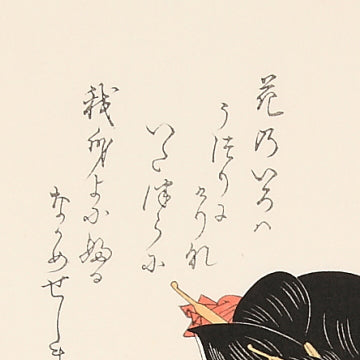 花乃いろハ
うつりに
けりな
いたつらに
我身よにふる
なかめせしま